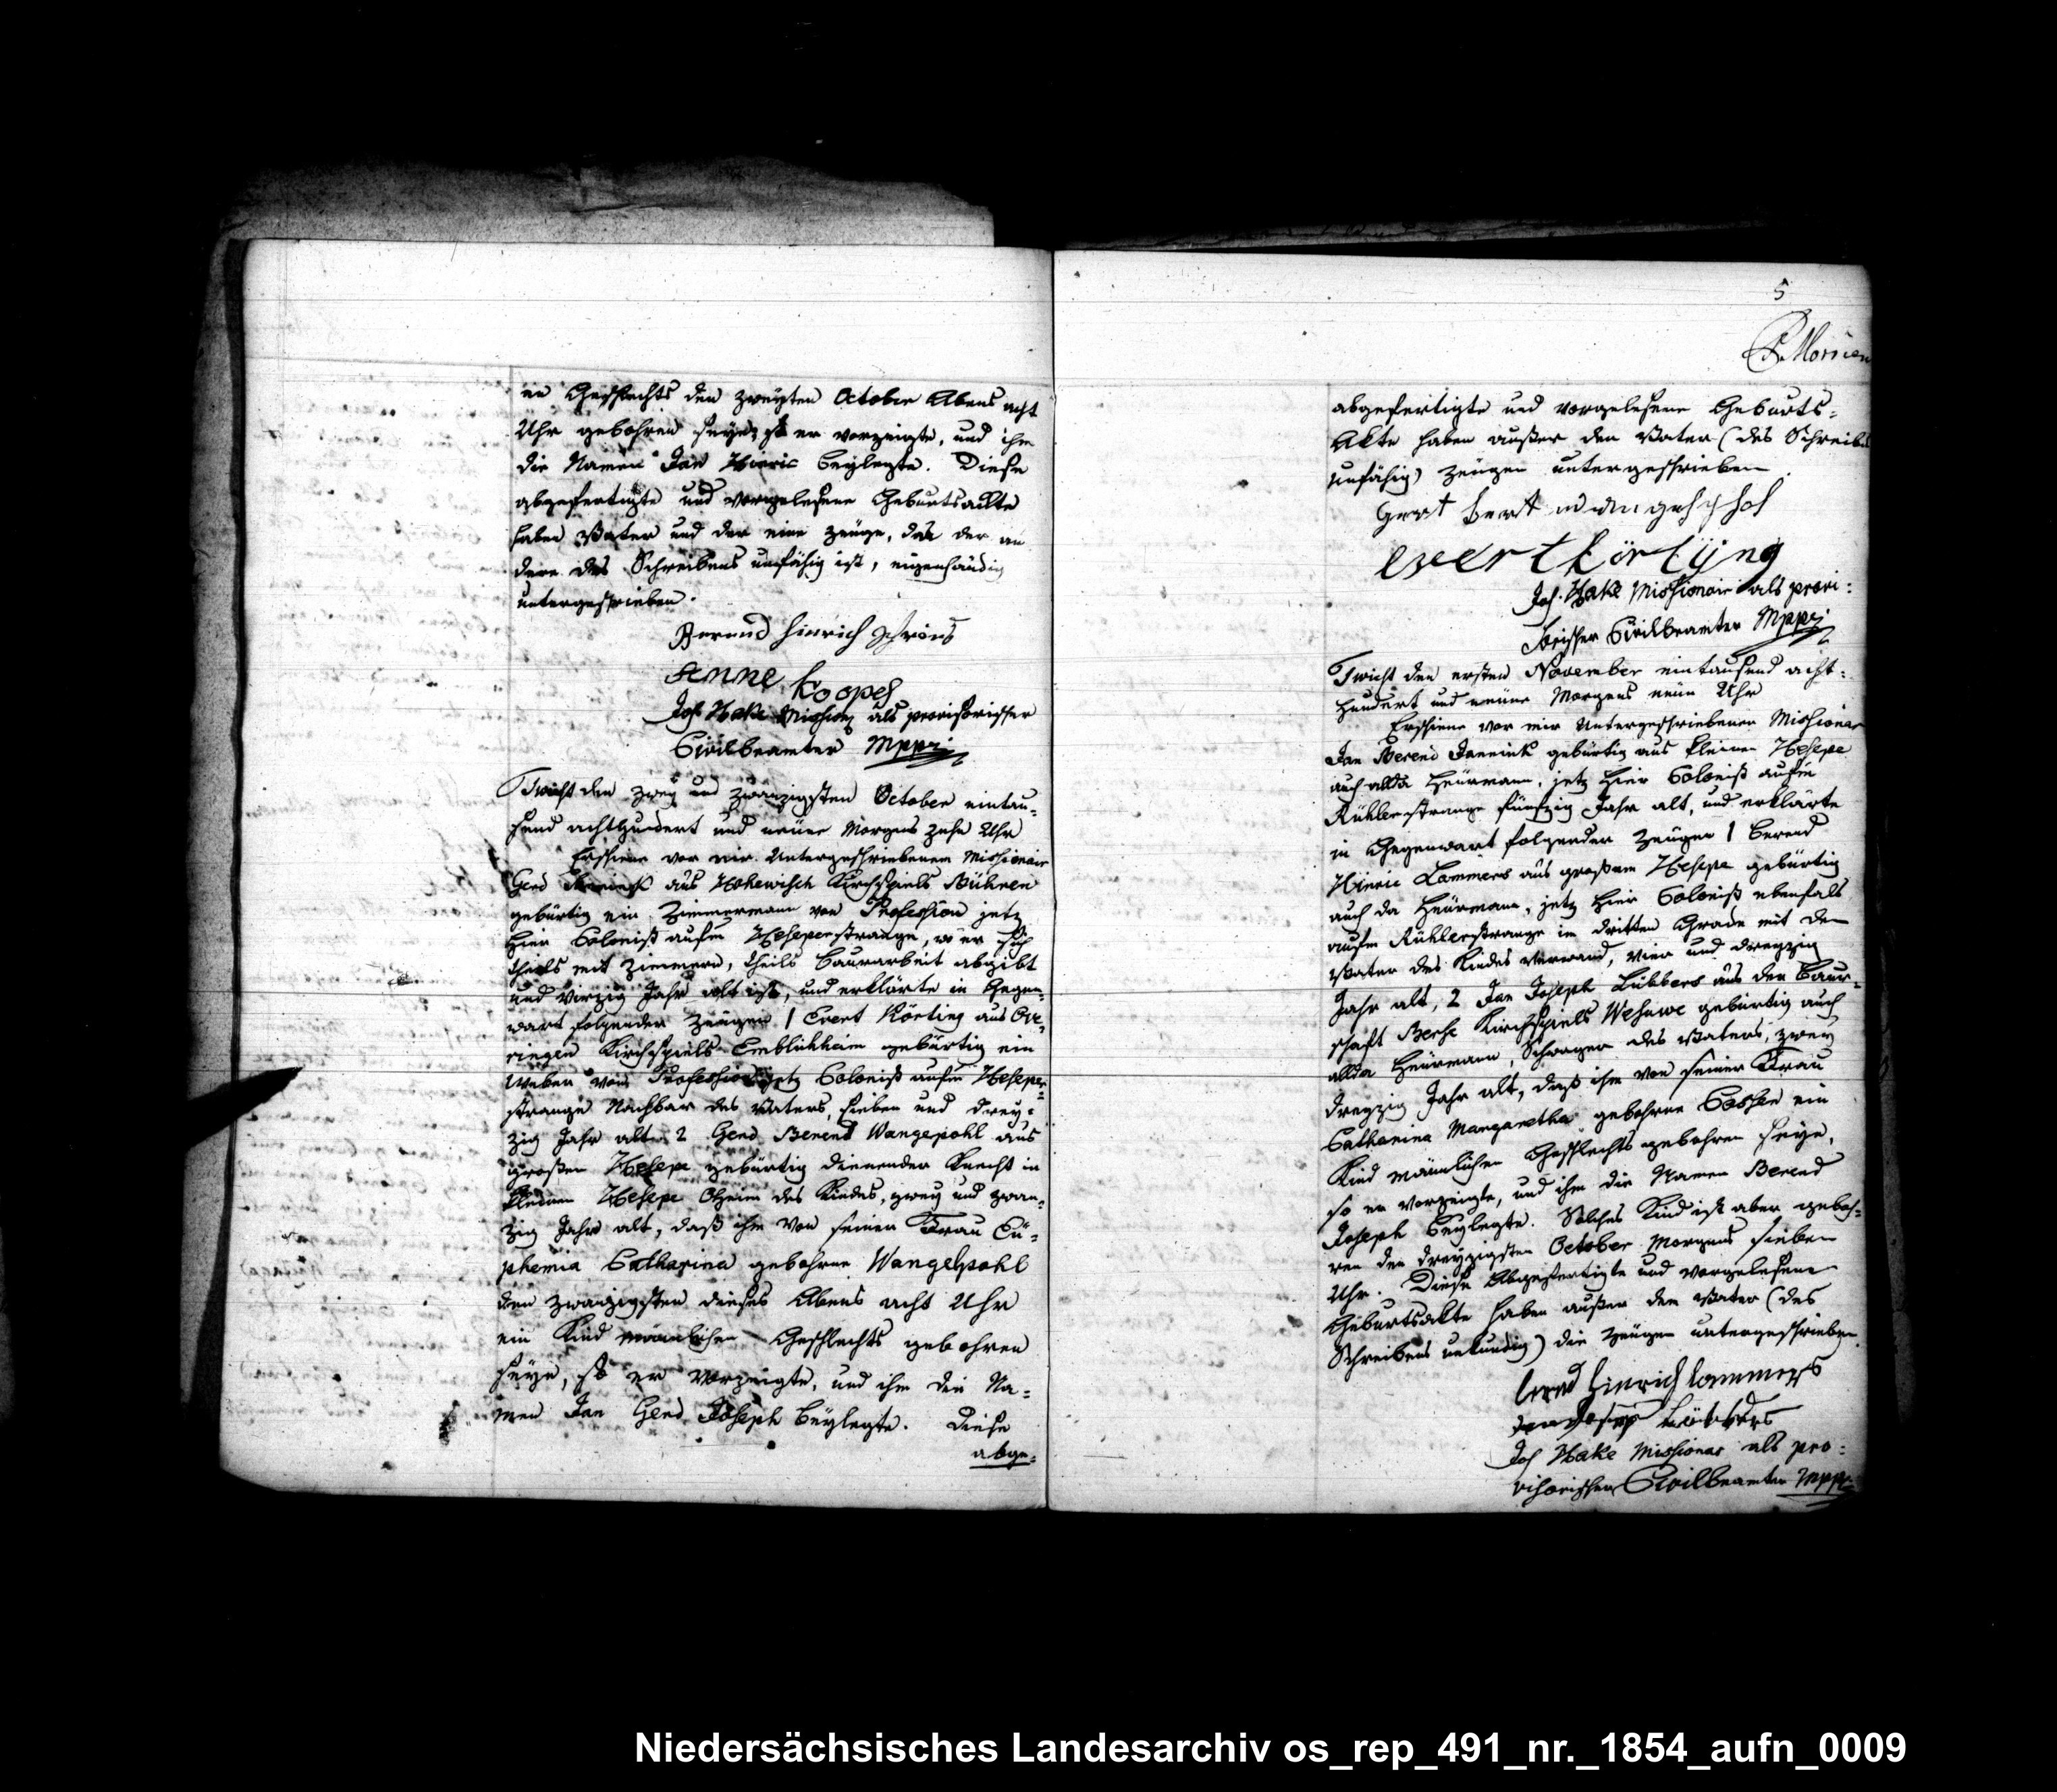 en Geschlechts den zweyten October Abens acht
Uhr gebohren seye, so er vorzeigte, und ihm
die Namen Jan Hinric beylegte. Diese
abgefertigte und vorgelesene Geburtsackte
haben Vater und der eine Zeuge, da der an
dere des Schreibens unfähig ist, eigenhändig
untergeschrieben.
Berend Hinrich
Anne Koopes
Jos. Hake Mission als provisorischer
Civilbeamter Mppr
Twist den zwey und zwanzigsten October eintau-
send achthundert und neüne Morgens zehn Uhr
Erschiene vor mir Untergeschriebenem Missionair
Gerd aus Hohewisch Kirchspiels Bühren
gebürtig ein Zimmermann von Profession jetz
hier Colonist aufm Heseperstrange, wo er sich
theils mit Zimmern, theils Baurarbeit abgibt
und virzig Jahr alt ist, und erklärte in Gegen-
wart folgender Zeugen 1 Evert Körting aus Ove-
ringen Kirchspiels Emblichheim gebürtig ein
Weber von Profession jetz Colonist aufm Heseper-
strange Nachbar des Vaters, sieben und drey-
zig Jahr alt. 2 Gerd Berend Wangepohl aus
großen Hesepe gebürtig dienender Knecht in
kleinen Hesepe Oheim des Kindes, zwey und zwan-
zig Jahr alt, daß ihm von seiner Frau Eü-
phemia Catharina gebohrne Wangelpohl
den zwanzigsten dieses Abens acht Uhr
ein Kind mänlichen Geschlechts gebohren
seye, so er vorzeigte, und ihm die Na-
men Jan Gerd Joseph beylegte. Diese
abge-
5
abgefertigte und vorgelesene Geburts-
Akte haben außer den Vater (des Schreibens
unfähig) Zeugen untergeschrieben.
Gert bert
evert körtijng
Jos. Hake Missionair als provi-
sorischer Civilbeamter Mppr
Twist den ersten November eintausend acht-
hundert und neüne Morgens neün Uhr
Erschiene vor mir Untergeschriebenen Missionar
Jan Berend Jannink gebürtig aus kleinen Hesepe
auch allda Heürmann, jetz hier Colonist aufm
Rühlerstrange fünfzig Jahr alt, und erklärte
in Gegenwart folgender Zeugen 1 Berend
Hinric Lammers aus großem Hesepe gebürtig
auch da Heürmann, jetz hier Colonist ebenfals
aufm Rühlerstrange im dritten Grade mit dem
Vater des Kindes verwand, vier und dreyzig
Jahr alt, 2 Jan Joseph Lübbers aus der Baur-
schaft Berse Kirchspiels Wesuwe gebürtig auch
allda Heürmann, Schwager des Vaters, zwey
dreyzig Jahr alt, daß ihm von seiner Frau
Catharina Margaretha gebohrne Cosse ein
Kind mänlichen Geschlechts gebohren seye,
so er vorzeigte, und ihm die Namen Berend
Joseph beylegte. Solches Kind ist aber geboh-
ren den dreyzigsten October Morgens sieben
Uhr. Diese Abgefertigte und vorgelesene
Geburtsakte haben außer dem Vater (des
Schreibens unkundig) die Zeugen untergeschrieben.
bernd Hinrich lammers
Jan Josep Lübbers
Jos Hake Missionar als pro-
visorischer Civilbeamter Mppr
Niedersächsisches Landesarchiv os_rep_491_nr._1854_aufn_0009